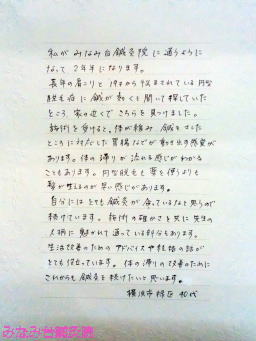 私がみなみ台鍼灸院に通うように
なって2年半になります。
長年の肩こりと19才から悩まされている円型
脱毛症に鍼が効くと聞いて探していた
ところ、家の近くでこちらを見つけました。
施術を受けると、体が緩み、鍼をさした
ところに対応した胃腸などが動き出す感覚が
あります。体の滞りが流れる感じがわかる
こともあります。円型脱毛も薬を使うよりも
髪が生えるのが早い感じがあります。
自分にはとても鍼灸が合っているなと思うので
続けています。施術の確かさと共に先生の
人柄に魅かれて通っている部分もあります。
生活改善のためのアドバイスや
とても役立っています。体の滞りの改善のために
これからも鍼灸を続けたいと思います。
横浜市緑区 40代
みなみ台鍼灸院